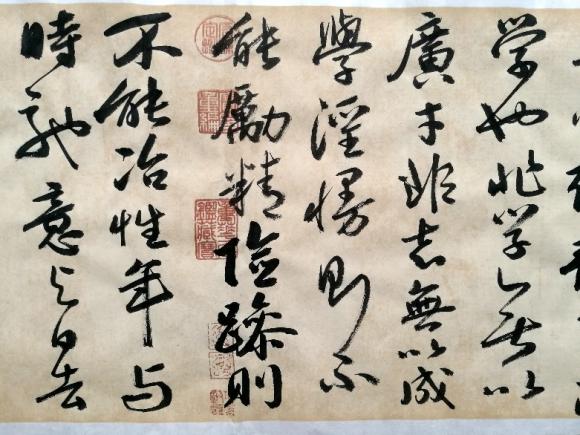 学也非学无以
廣才非志無以成
學淫慢则不
能勵精險躁則
不能冶性年与
時馳意与日去